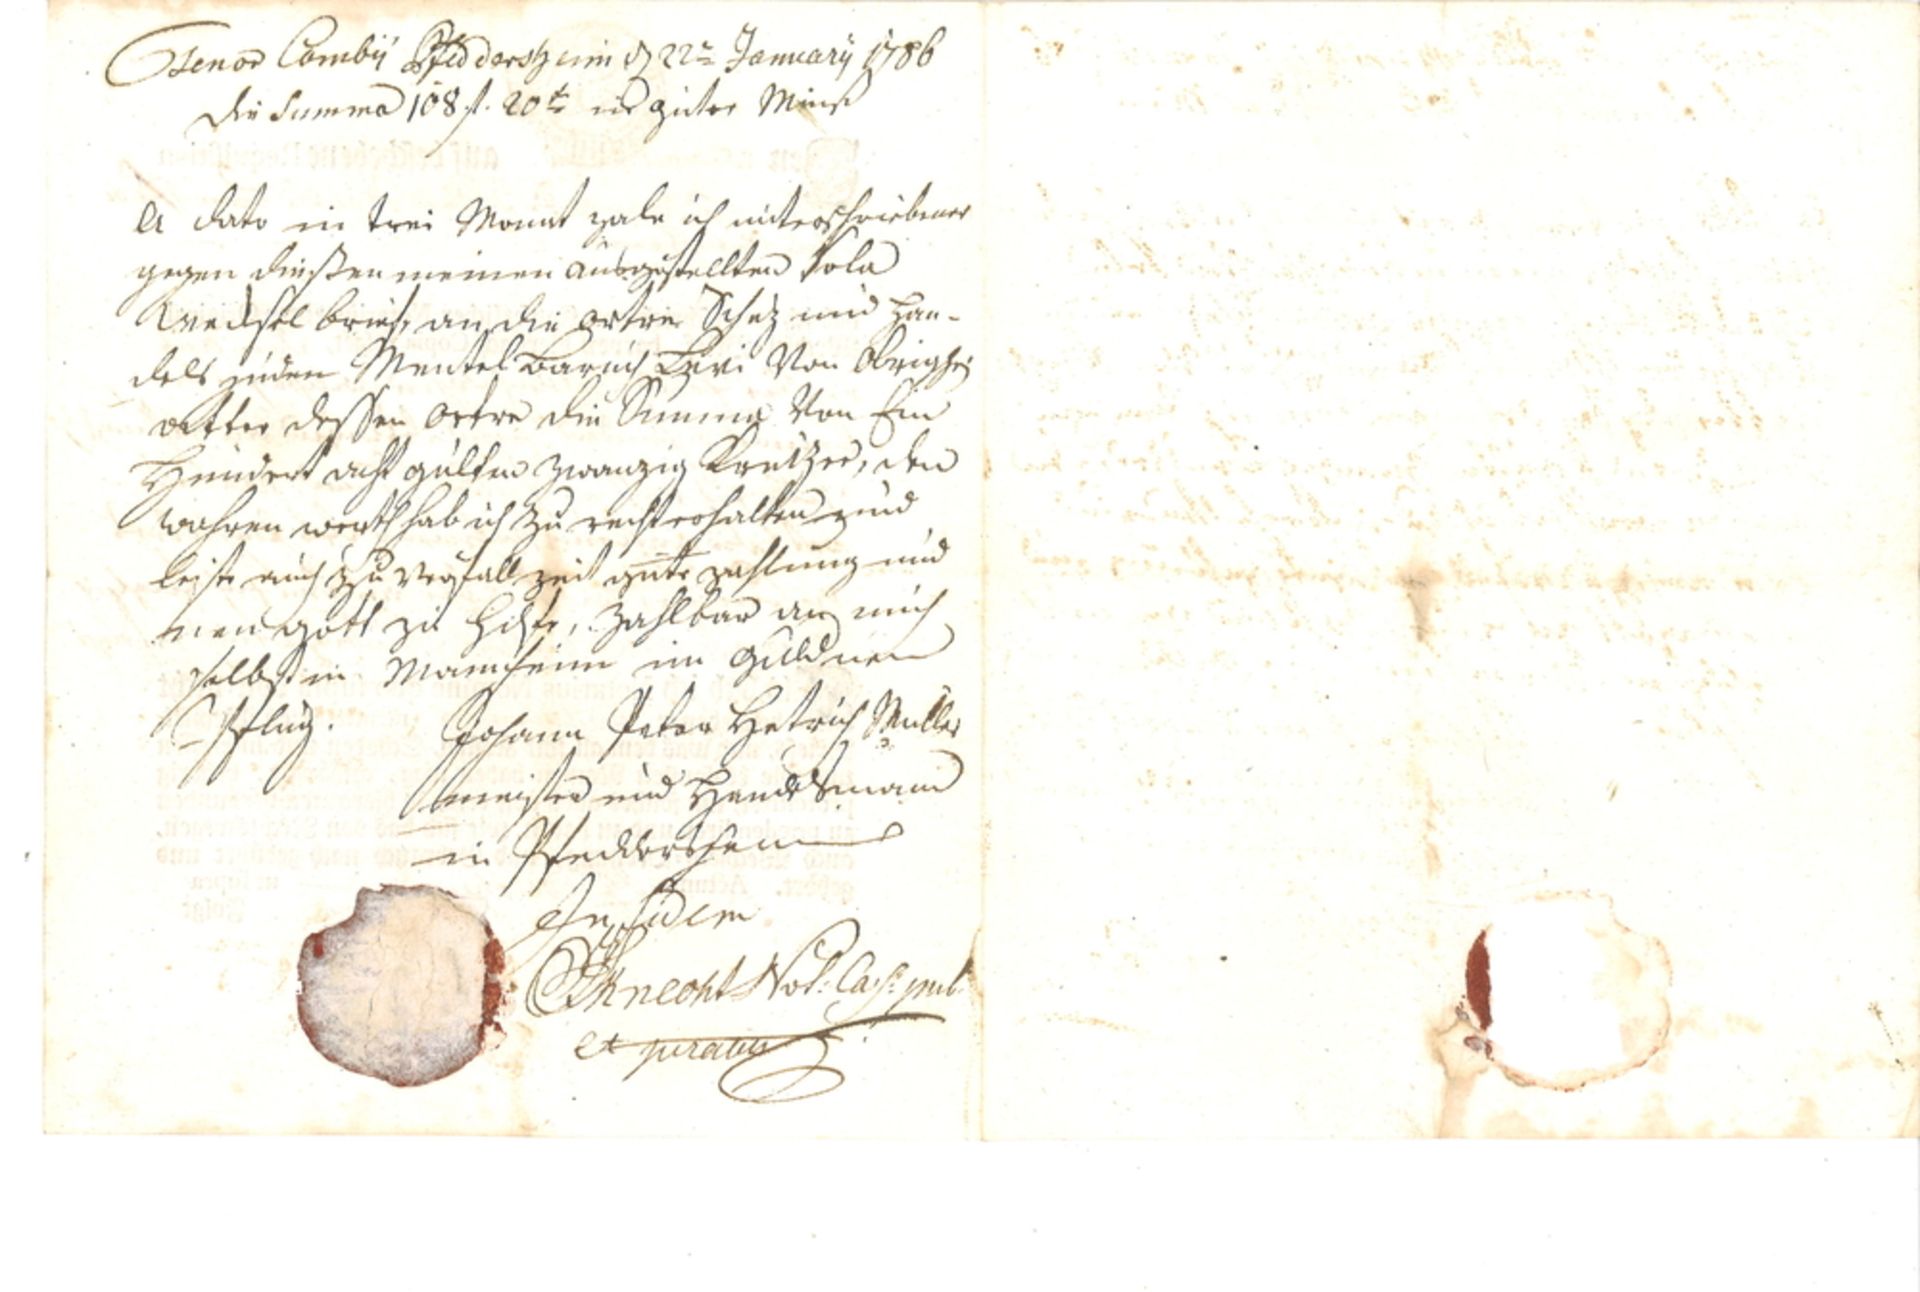 Tenor Cambÿ Pfeddersheim d 22n Januarÿ 1786
die Summa 108 fl. 20 in guter Münß
A dato in trei Monat zale ich unterschriebener
gegen dießen meinen ausgestellten Sola
Wechsel brief, an die ortre Schuz und Han-
dels juden Mentel Baruch Levi Von Obrigh
oder dessen ortre die Summa Von Ein
Hundert acht gulten zwanzig Kreützer, den
wahren werth hab ich zu recht erhalten und
leiste auch zu verfall zeit gute zahlung und
nen gott zu hilfe, zahlbar an mich
selbst in Mannheim im guldnen
Pflug. Johann Peter Hetrich Muller
meister und Handelsmann
in Pfeddersheim
In fidem
Knecht Not: Cæs: pub:
et juratus